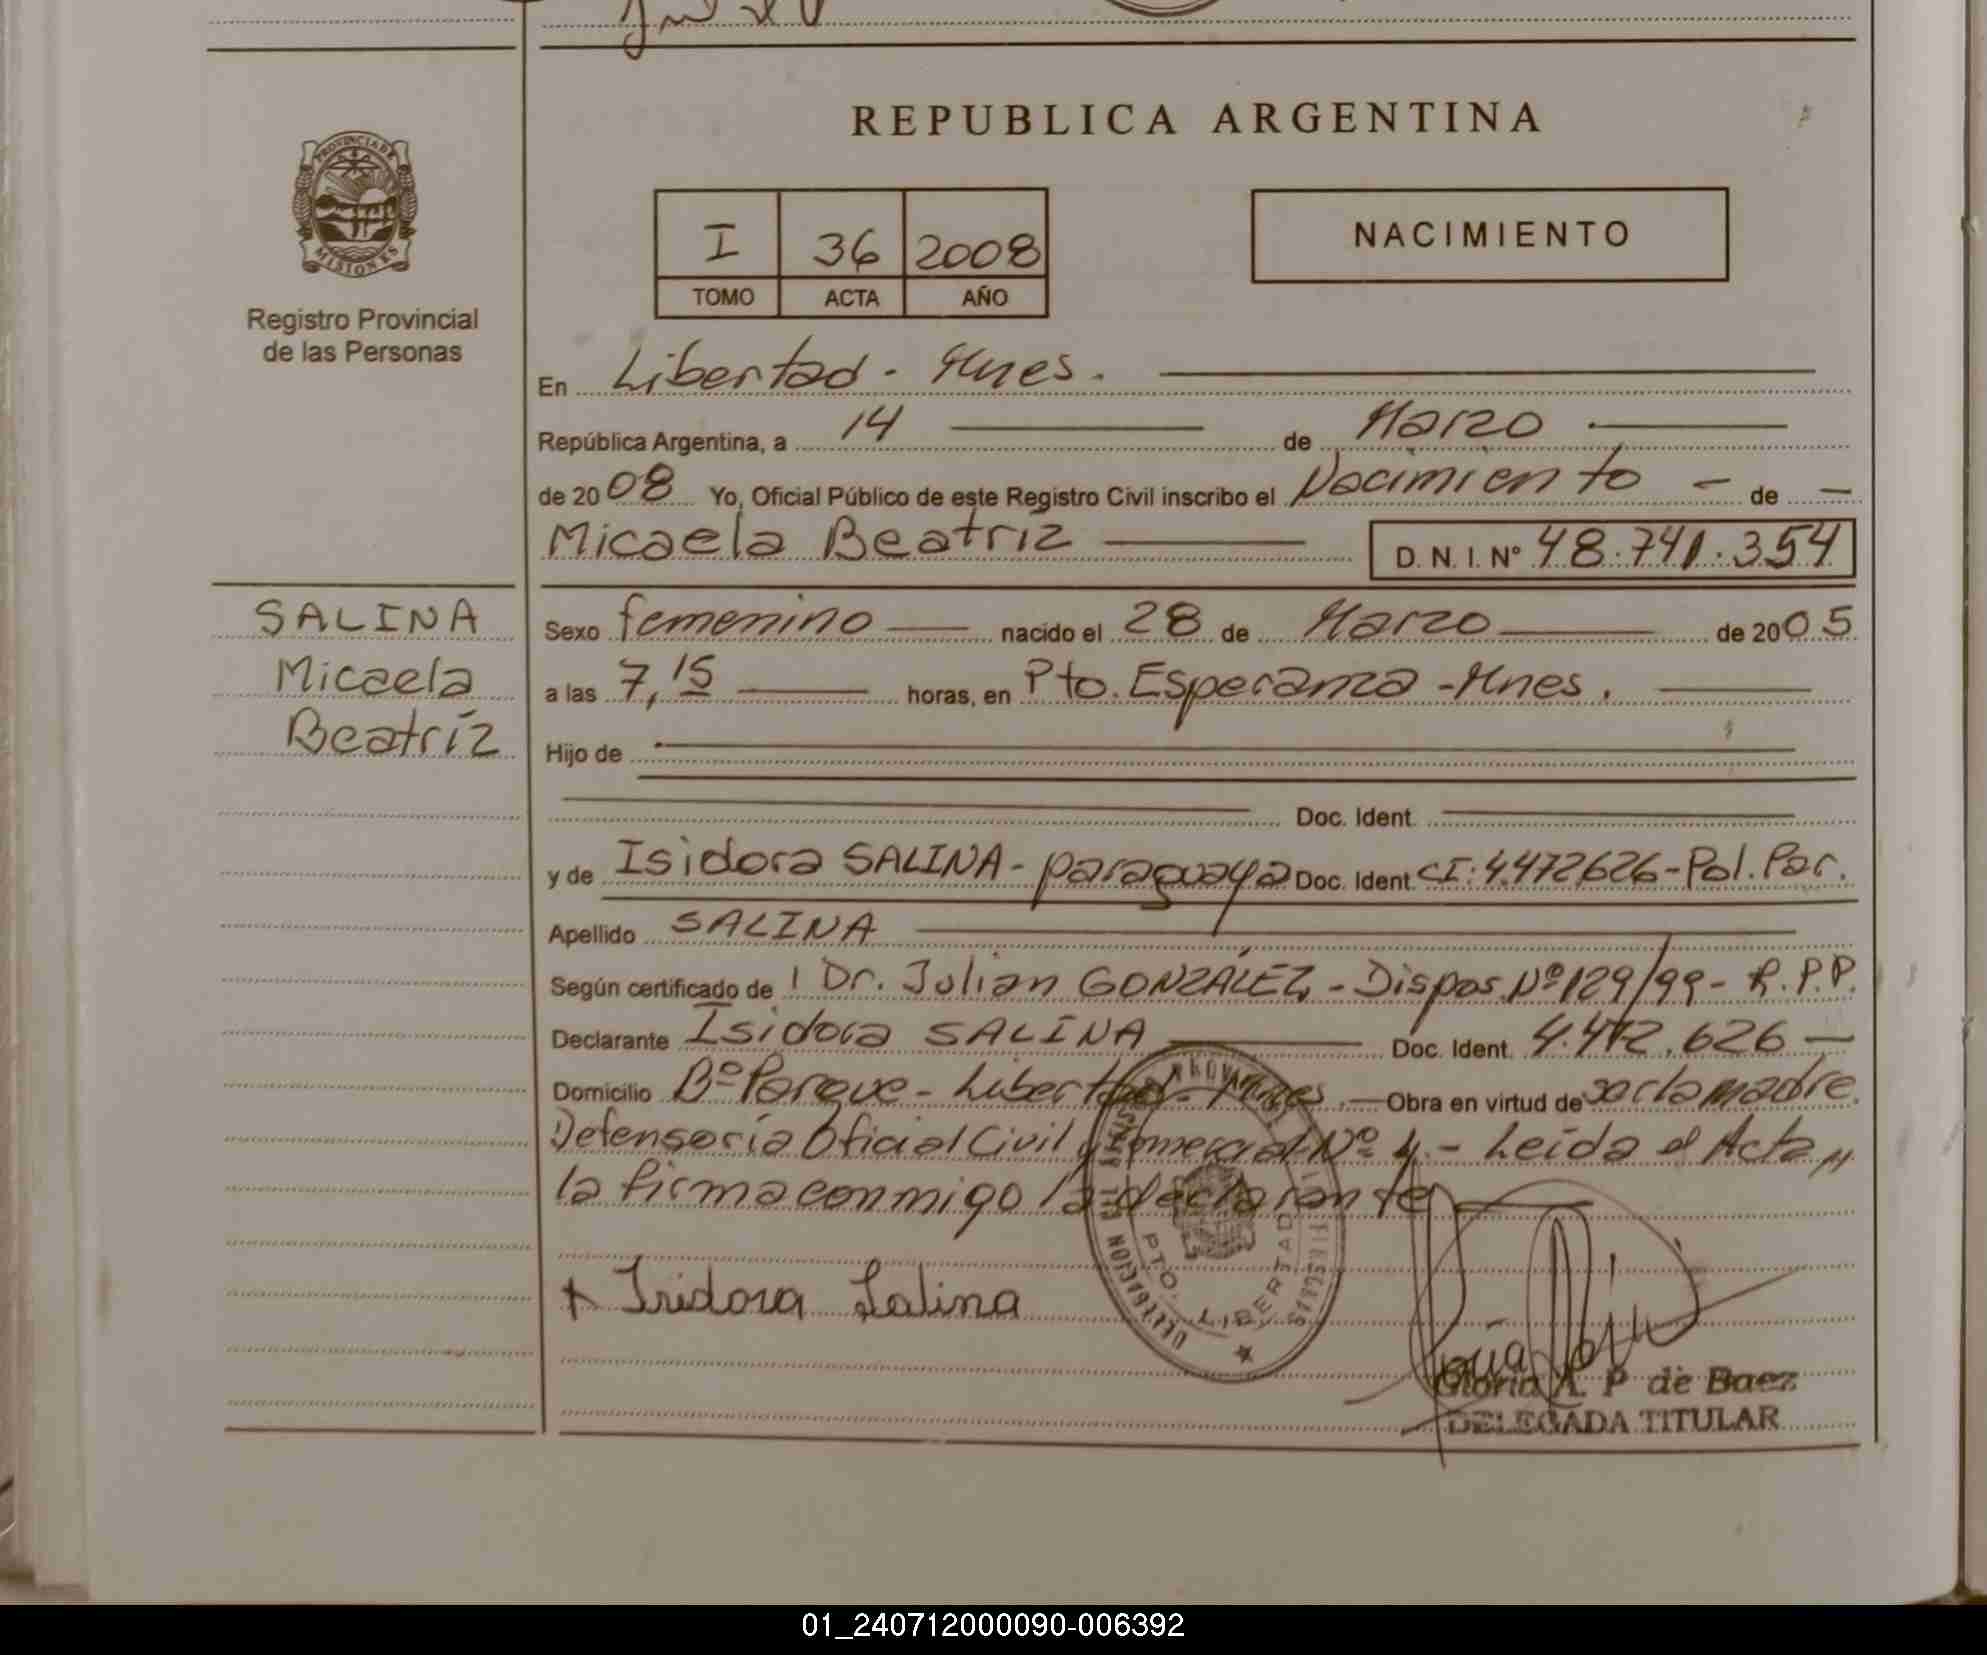 REPUBLICA ARGENTINA
PROVINCIA DE
MISIONES
Registro Provincial
de las Personas
I 36 2008
TOMO ACTA AÑO
NACIMIENTO
En Libertad - Mnes.
República Argentina, a 14 de Marzo
de 2008 Yo, Oficial Público de este Registro Civil inscribo el Nacimiento - de -
Micaela Beatríz D. N. I. N° 48.741.354
SALINA
Micaela
Beatríz
Sexo femenino nacido el 28 de Marzo de 2005
a las 7,15 horas, en Pto. Esperanza - Mnes.
Hijo de
Doc. Ident.
y de Isidora SALINA - paraguaya Doc. Ident. CI: 4.472.626 - Pol. Par.
Apellido SALINA
Según certificado de Dr. Julian GONZÁLEZ - Dispos. Nº 129/99 - R.P.P.
Declarante Isidora SALINA Doc. Ident. 4.472.626 -
Domicilio Bº Parque - Libertad - Mnes. Obra en virtud de ser la madre.
Defensoría Oficial Civil y Comercial Nº 4 - Leída el Acta
la firma conmigo la declarante
PTO. LIBERTAD
x Isidora Salina
Gloria A. P. de Baez
DELEGADA TITULAR
01_240712000090-006392